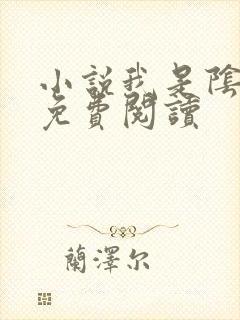 小說我是陰
免費閱讀
蘭澤尔